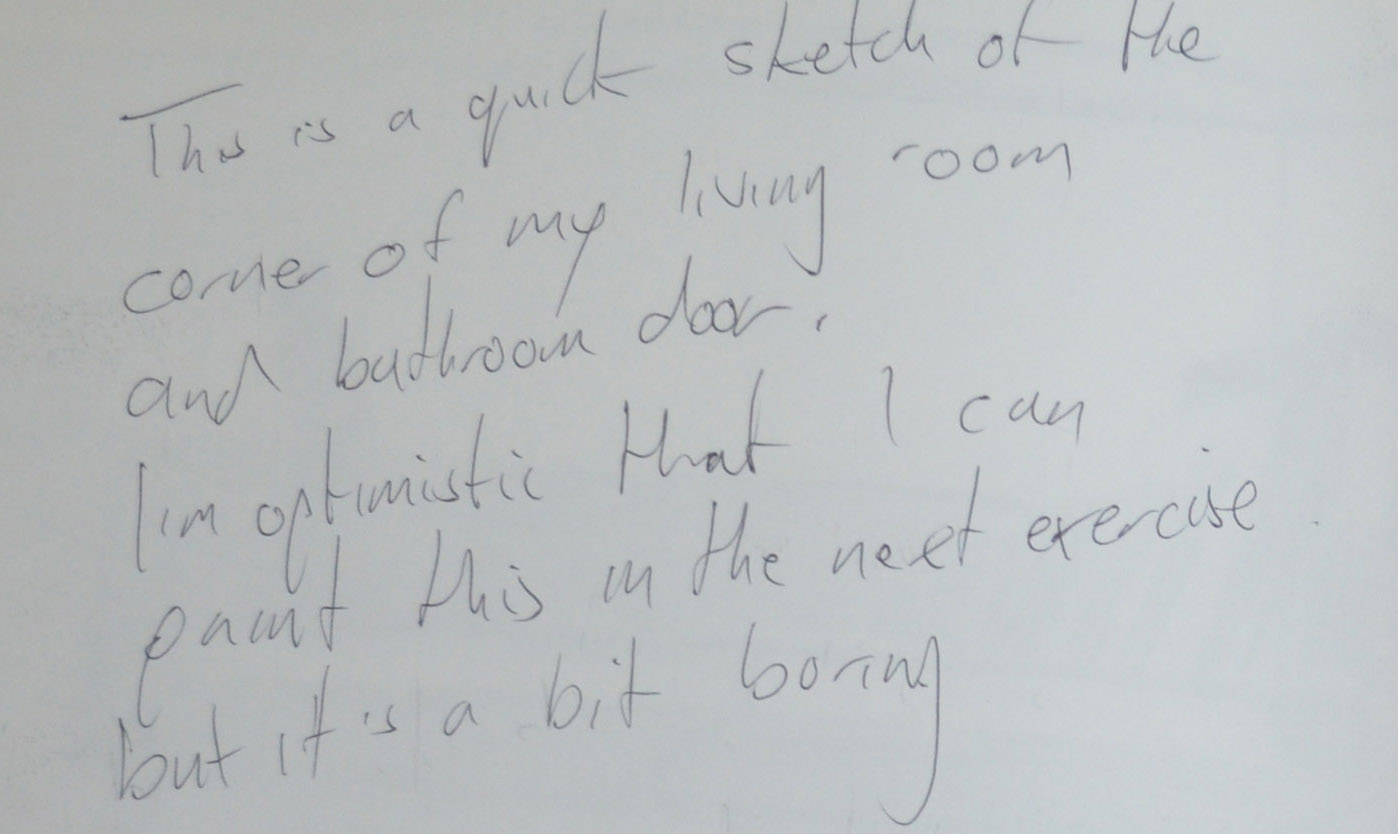 This is a quick sketch of the
corner of my living room
and bathroom door.
I'm optimistic that I can
paint this in the next exercise.
but it is a bit boring